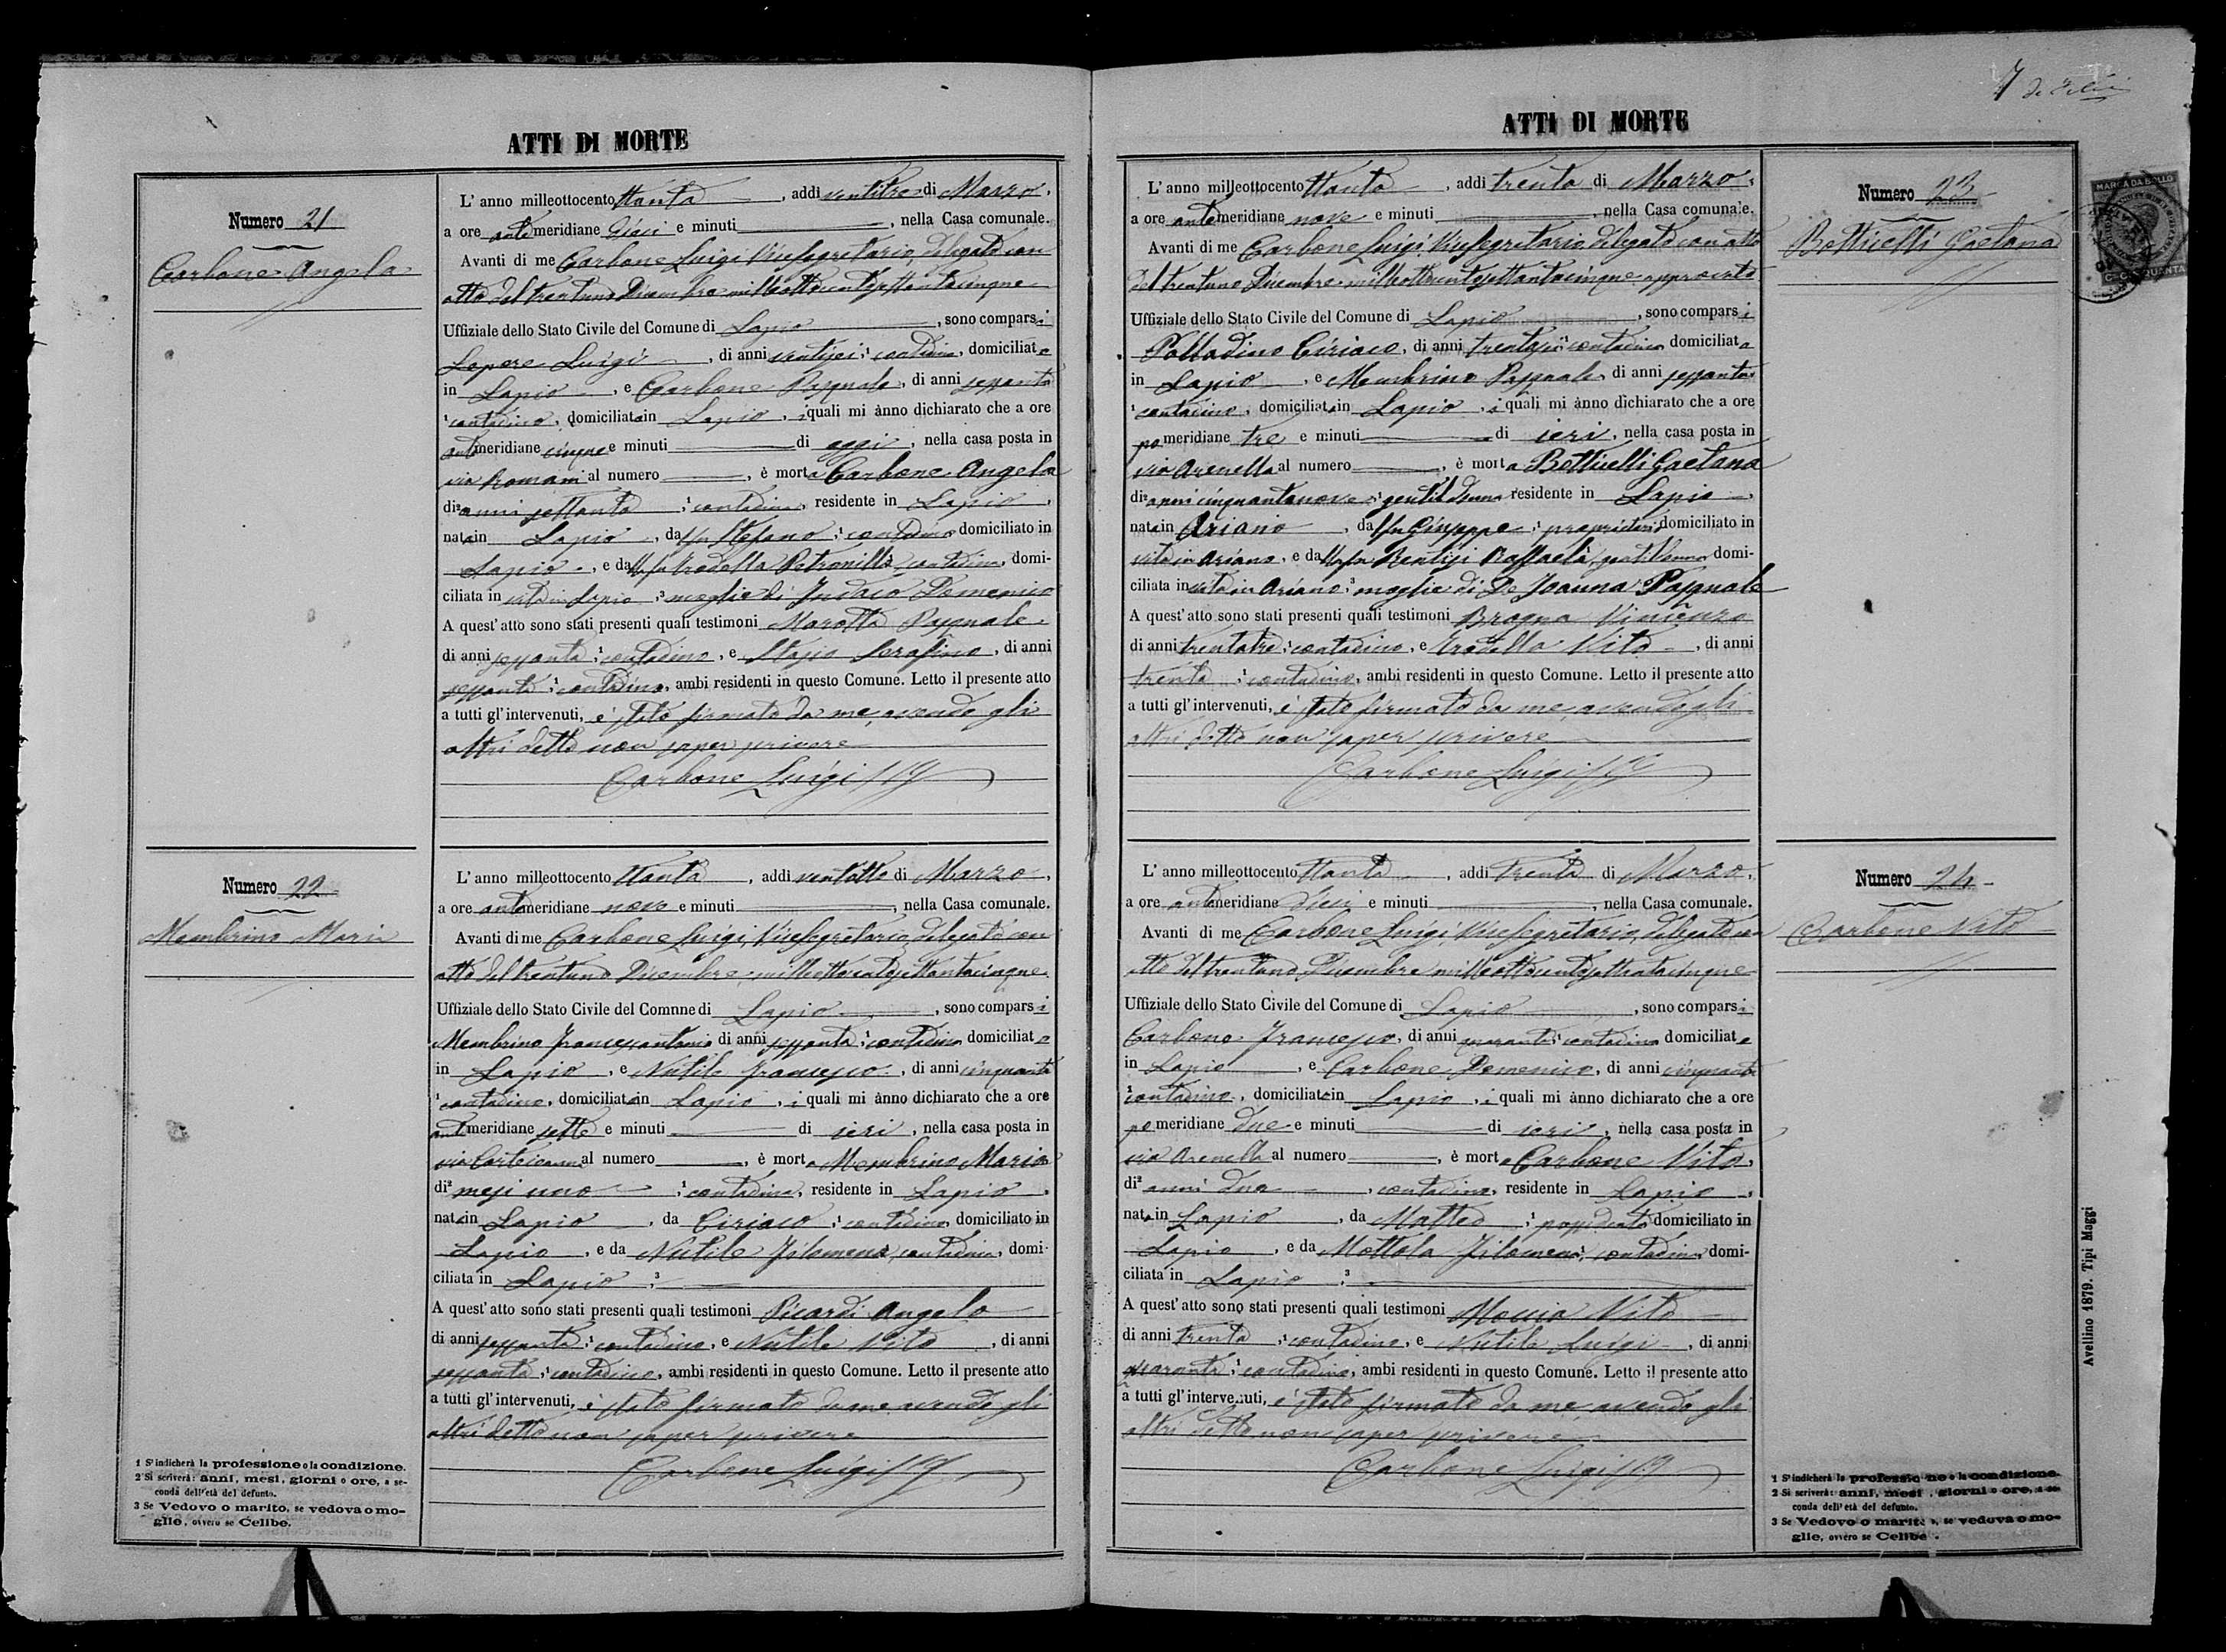 ATTI DI MORTE
Numero 21
Carbone Angela
L'anno milleottocento ttanta, addì ventitre di Marzo,
a ore antimeridiane dieci e minuti, nella Casa comunale.
Avanti di me Carbone Luigi Vicesegretario, delegato con
atto del trentuno Dicembre milleottocentosettantacinque
Uffiziale dello Stato Civile del Comune di Lapio, sono comparsi
Lepore Luigi, di anni ventisei, 1 contadino, domiciliato
in Lapio, e Carbone Pasquale, di anni sessanta
1 contadino, domiciliato in Lapio, i quali mi ànno dichiarato che a ore
antimeridiane cinque e minuti di oggi, nella casa posta in
via Romani al numero, è morta Carbone Angela
di 2 anni settanta, 1 contadina, residente in Lapio,
nata in Lapio, da fu Stefano, 1 contadino domiciliato in
Lapio, e da fu Trodella Petronilla, contadina, domi-
ciliata in vita in Lapio, 3 moglie di Iodaco Domenico
A quest'atto sono stati presenti quali testimoni Marotta Pasquale,
di anni sessanta, 1 contadino, e Stasio Serafino, di anni
sessanta, 1 contadino, ambi residenti in questo Comune. Letto il presente atto
a tutti gl'intervenuti, è stato firmato da me, avendo gli
altri detto non saper scrivere
Carbone Luigi
Numero 22
Membrino Maria
L'anno milleottocento ttanta, addì ventotto di Marzo,
a ore antimeridiane nove e minuti, nella Casa comunale.
Avanti di me Carbone Luigi, Vicesegretario, delegato con
atto del trentuno Dicembre milleottocentosettantacinque
Uffiziale dello Stato Civile del Comnne di Lapio, sono comparsi
Membrino Francescantonio di anni sessanta, 1 contadino domiciliato
in Lapio, e Nutile Francesco, di anni cinquanta
1 contadino, domiciliato in Lapio, i quali mi ànno dichiarato che a ore
antimeridiane sette e minuti di ieri, nella casa posta in
via al numero, è morta Membrino Maria
di 2 mesi uno, 1 contadina, residente in Lapio,
nata in Lapio, da Ciriaco, 1 contadino domiciliato in
Lapio, e da Nutile Filomena, contadina, domi-
ciliata in Lapio, 3
A quest'atto sono stati presenti quali testimoni Picardi Angelo
di anni sessanta, 1 contadino, e Nutile Vito, di anni
sessanta, 1 contadino, ambi residenti in questo Comune. Letto il presente atto
a tutti gl'intervenuti, è stato firmato da me avendo gli
altri detto non saper scrivere
Carbone Luigi
1 S'indicherà la professione o la condizione.
2 Si scriverà: anni, mesi, giorni o ore, a se-
conda dell'età del defunto.
3 Se Vedovo o marito, se vedova o mo-
glie, ovvero se Celibe.
7
ATTI DI MORTE
MARCA DA BOLLO
Numero 23
Botticelli Gaetana
L'anno milleottocento ttanta, addì trenta di Marzo,
a ore antimeridiane nove e minuti, nella Casa comunale.
Avanti di me Carbone Luigi, Vicesegretario delegato con atto
del trentuno Dicembre milleottocentosettantacinque approvato
Uffiziale dello Stato Civile del Comune di Lapio, sono comparsi
Palladino Ciriaco, di anni trentasei, 1 contadino domiciliato
in Lapio, e Membrino Pasquale, di anni sessanta
1 contadino, domiciliato in Lapio, i quali mi ànno dichiarato che a ore
pomeridiane tre e minuti di ieri, nella casa posta in
via Arenella al numero, è morta Botticelli Gaetana
di 2 anni cinquantanove, 1 gentildonna residente in Lapio,
nata in Ariano, da fu Giuseppe, 1 proprietario domiciliato in
vita in Ariano, e da fu Raffaela, gentildonna domi-
ciliata in vita in Ariano, 3 moglie di De Joanna Pasquale
A quest'atto sono stati presenti quali testimoni Brogna Vincenzo
di anni trentatre, 1 contadino, e Trodella Vito, di anni
trenta, 1 contadino, ambi residenti in questo Comune. Letto il presente atto
a tutti gl'intervenuti, è stato firmato da me, avendo gli
altri detto non saper scrivere
Carbone Luigi
Numero 24
Carbone Vito
L'anno milleottocento ttanta, addì trenta di Marzo,
a ore antimeridiane dieci e minuti, nella Casa comunale.
Avanti di me Carbone Luigi, Vicesegretario, delegato con
atto del trentuno Dicembre milleottocentosettantacinque
Uffiziale dello Stato Civile del Comune di Lapio, sono comparsi
Carbone Francesco, di anni quaranta, 1 contadino domiciliato
in Lapio, e Carbone Domenico, di anni cinquanta
1 contadino, domiciliato in Lapio, i quali mi ànno dichiarato che a ore
pomeridiane due e minuti di ieri, nella casa posta in
via Arenella al numero, è morto Carbone Vito,
di 2 anni due, contadino, residente in Lapio,
nato in Lapio, da Matteo, 1 possidente domiciliato in
Lapio, e da Mottola Filomena, contadina, domi-
ciliata in Lapio, 3
A quest'atto sono stati presenti quali testimoni Moccia Vito
di anni trenta, 1 contadino, e Nutile Luigi, di anni
quaranta, 1 contadino, ambi residenti in questo Comune. Letto il presente atto
a tutti gl'intervenuti, è stato firmato da me, avendo gli
altri detto non saper scrivere
Carbone Luigi
1 S'indicherà la professione o la condizione.
2 Si scriverà: anni, mesi, giorni o ore, a se-
conda dell'età del defunto.
3 Se Vedovo o marito, se vedova o mo-
glie, ovvero se Celibe.
Avellino 1879. Tipi Maggi